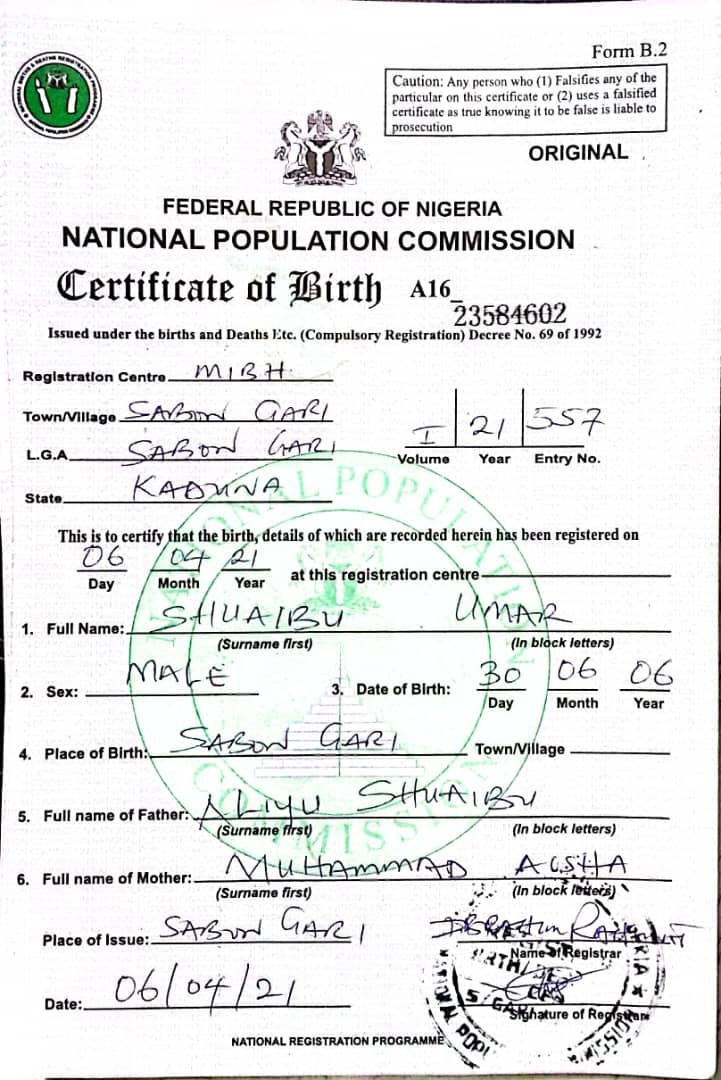 Form B.2
Caution: Any person who (1) Falsifies any of the
particular on this certificate or (2) uses a falsified
certificate as true knowing it to be false is liable to
prosecution
ORIGINAL
FEDERAL REPUBLIC OF NIGERIA
NATIONAL POPULATION COMMISSION
Certificate of Birth A16_
23584602
Issued under the births and Deaths Etc. (Compulsory Registration) Decree No. 69 of 1992
Registration Centre MIBH
Town/Village SABON GARI
L.G.A. SABON GARI
I 21 557
Volume Year Entry No.
State KADUNA
This is to certify that the birth, details of which are recorded herein has been registered on
06 04 21
Day Month Year at this registration centre
1. Full Name: SHUAIBU UMAR
(Surname first) (In block letters)
2. Sex: MALE 3. Date of Birth: 30 06 06
Day Month Year
4. Place of Birth: SABON GARI Town/Village
5. Full name of Father: ALIYU SHUAIBU
(Surname first) (In block letters)
6. Full name of Mother: MUHAMMAD
(Surname first) (In block letters)
Place of Issue: SABON GARI
Name of Registrar
Date: 06/04/21
Signature of Registrar
NATIONAL REGISTRATION PROGRAMME
NATIONAL POPULATION COMMISSION